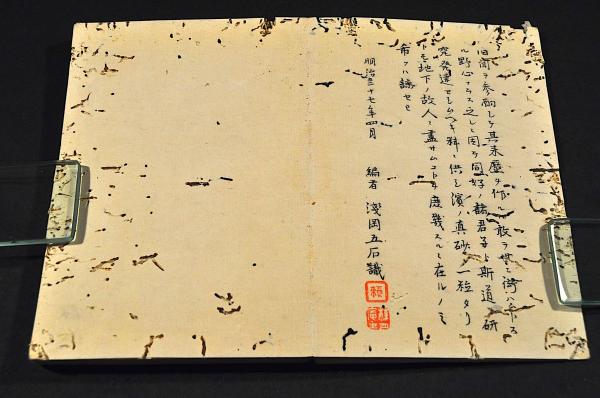 旧聞ヲ参酌シテ其来歴ヲ作ル敢テ世ニ衒ハムトスル
野心ナラス之レヲ同好ノ諸君子ト斯道ノ研
究発達セシムヘキ料ニ供シ濱ノ真砂ノ一粒タリ
トモ地下ノ故人ニ盡サムコトヲ庶幾スルニ在ルノミ
希クハ諒セヨ
明治三十七年四月
編者 淺岡五石識